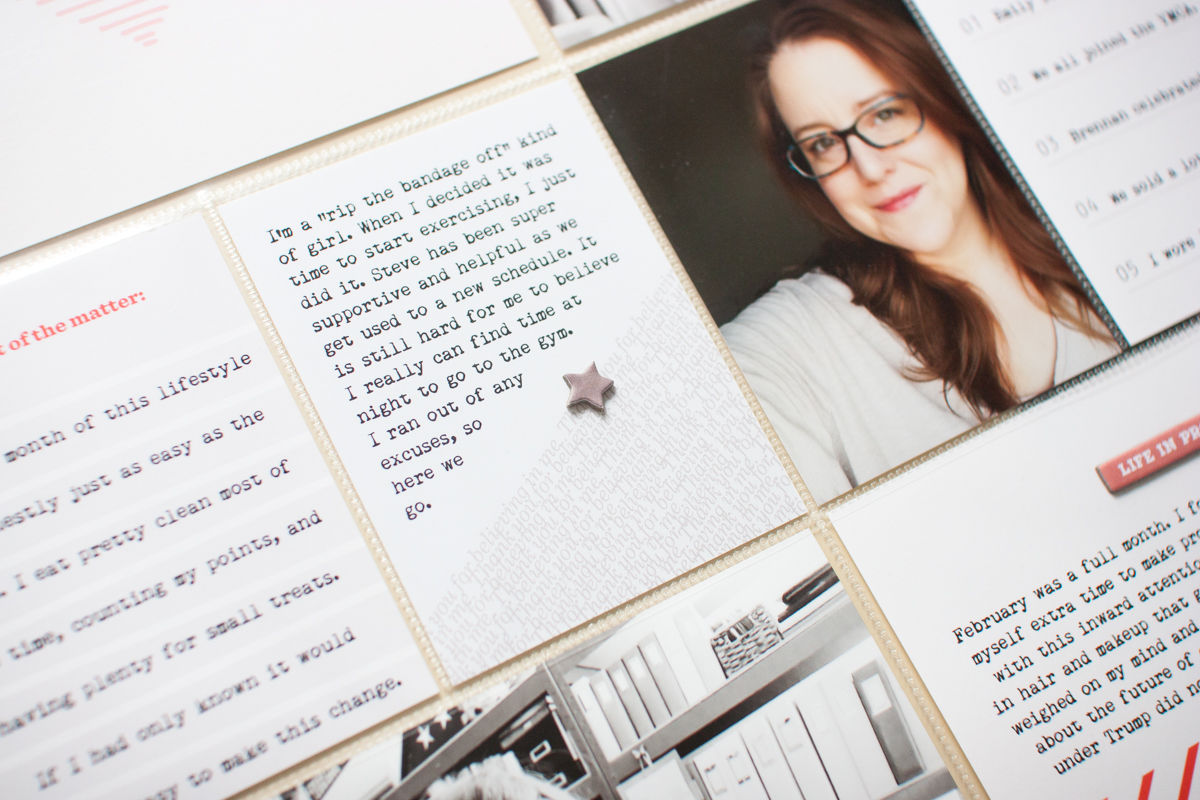 of the matter:
month of this lifestyle
just as easy as the
I eat pretty clean most of
time, counting my points, and
having plenty for small treats.
If I had only known it would
to make this change.
I'm a "rip the bandage off" kind
of girl. When I decided it was
time to start exercising, I just
did it. Steve has been super
supportive and helpful as we
get used to a new schedule. It
is still hard for me to believe
I really can find time at
night to go to the gym.
I ran out of any
excuses, so
here we
go.
01
02 We all joined the YMCA.
03 Brennan celebrated
04 We sold a
05 I wore
LIFE IN
February was a full month. I
myself extra time to make
with this inward
in hair and makeup that
weighed on my mind and
about the future of
under Trump did